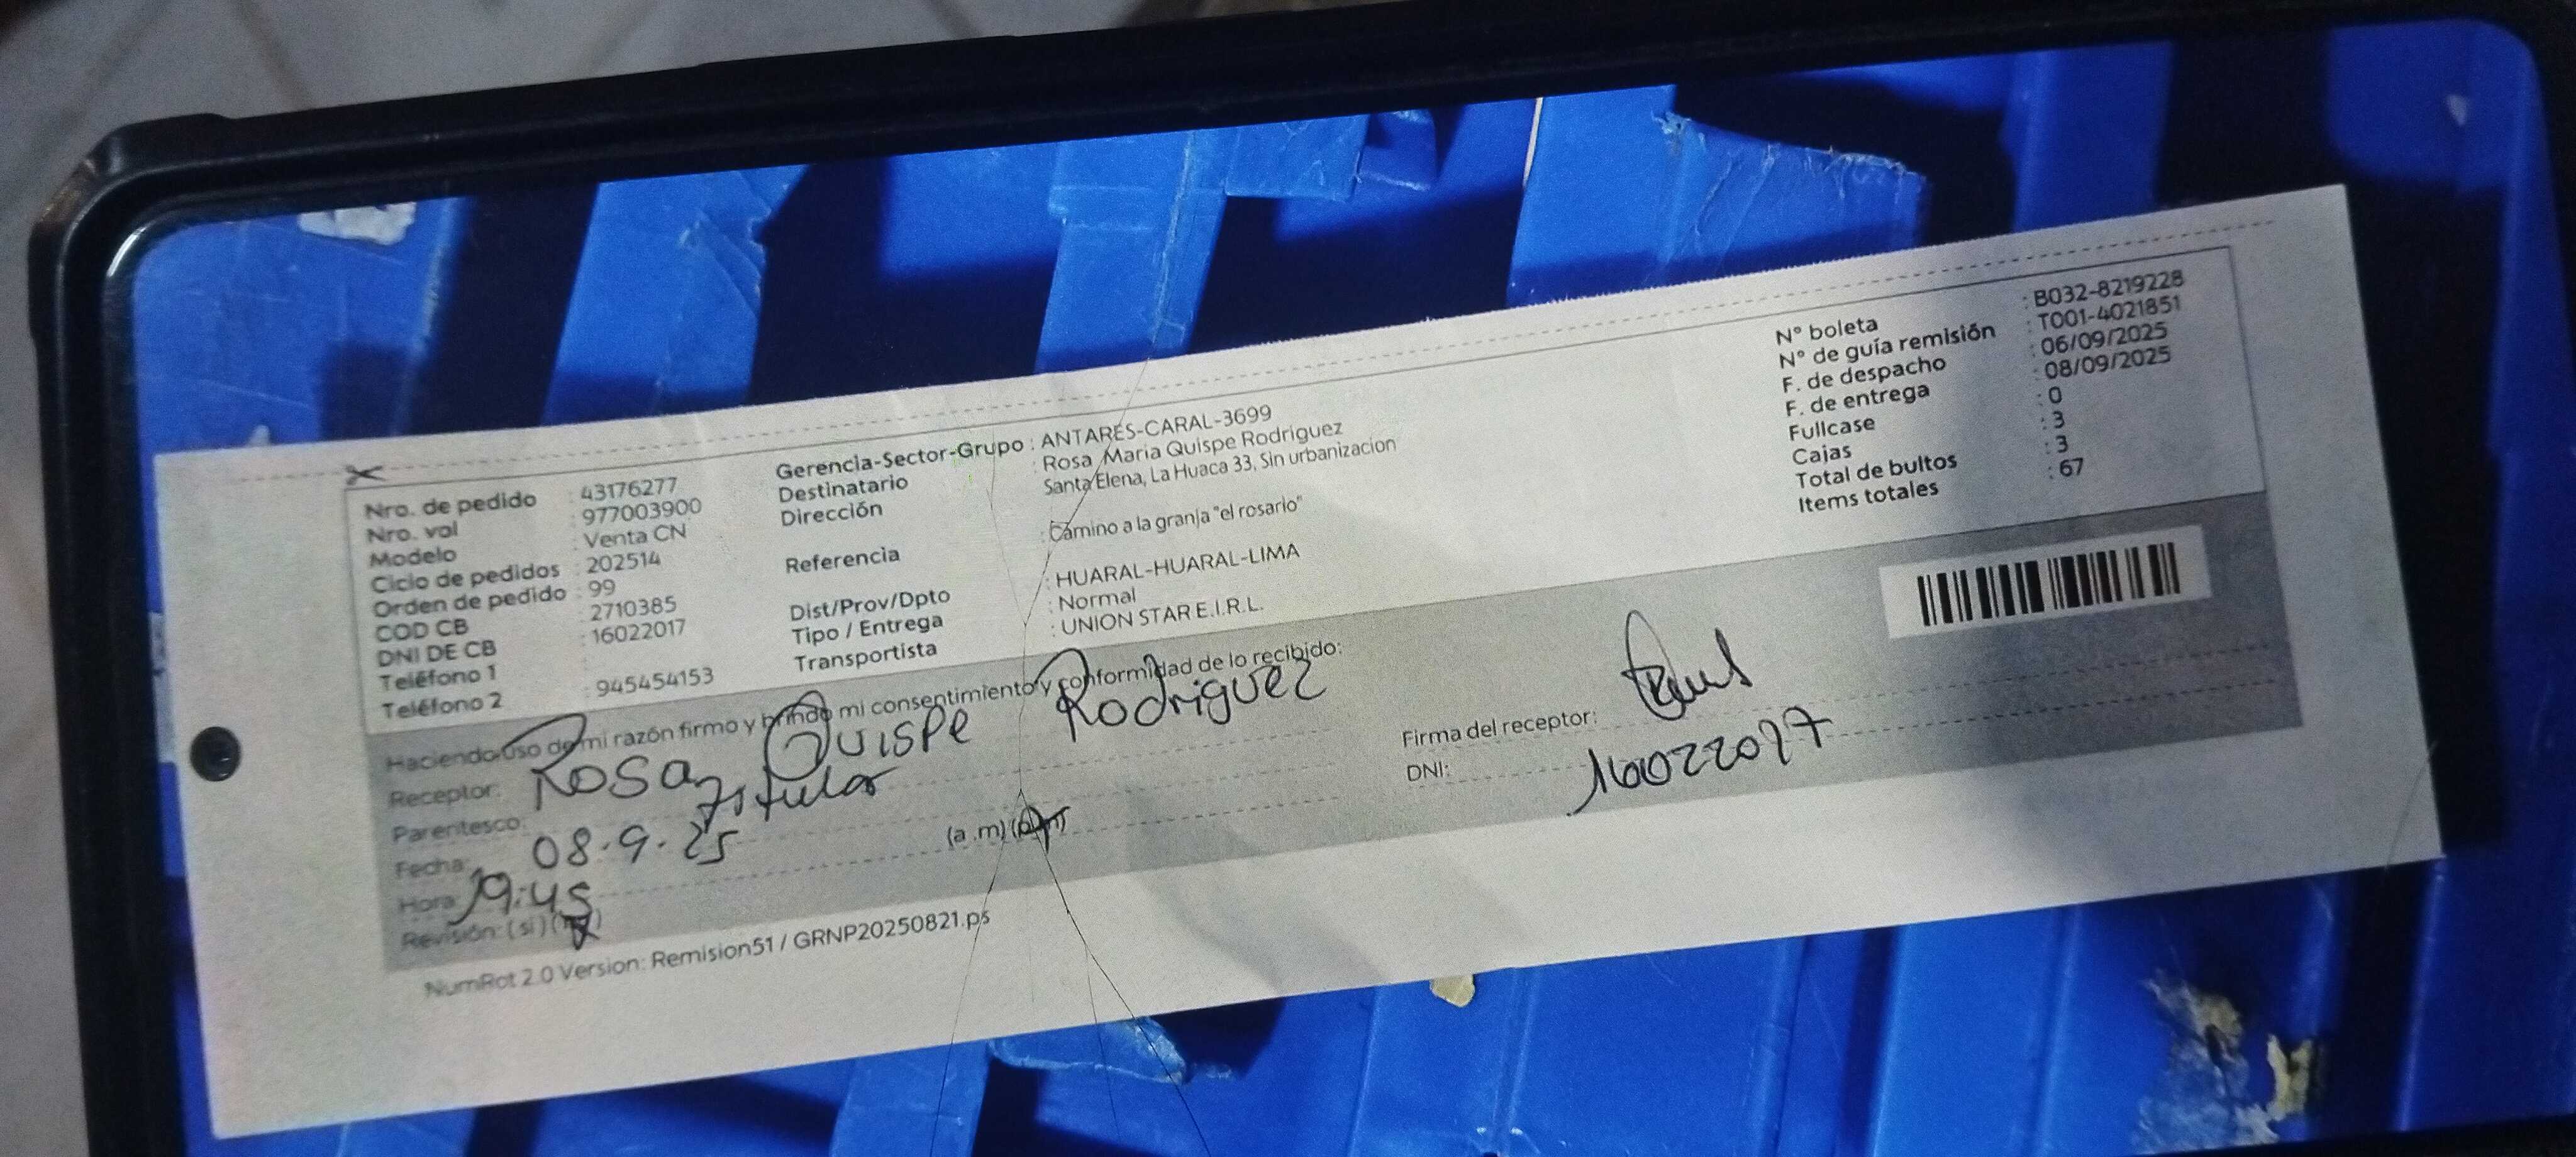 Nro. de pedido : 43176277
Nro. vol : 977003900
Modelo : Venta CN
Ciclo de pedidos : 202514
Orden de pedido : 99
COD CB : 2710385
DNI DE CB : 16022017
Teléfono 1 :
Teléfono 2 : 945454153
Gerencia-Sector-Grupo : ANTARES-CARAL-3699
Destinatario : Rosa Maria Quispe Rodriguez
Dirección : Santa Elena, La Huaca 33, Sin urbanizacion
Referencia : Camino a la granja "el rosario"
Dist/Prov/Dpto : HUARAL-HUARAL-LIMA
Tipo / Entrega : Normal
Transportista : UNION STAR E.I.R.L.
N° boleta : B032-8219228
N° de guía remisión : T001-4021851
F. de despacho : 06/09/2025
F. de entrega : 08/09/2025
Fullcase : 0
Cajas : 3
Total de bultos : 3
Items totales : 67
Haciendo uso de mi razón firmo y brindo mi consentimiento y conformidad de lo recibido:
Receptor: Rosa Quispe Rodriguez
Parentesco: titular
Fecha: 08.9.25
Hora: 19:45 (a .m) (p.m)
Revisión: ( si ) (no)
Firma del receptor:
DNI: 16022017
NumRot 2.0 Version: Remision51 / GRNP20250821.ps